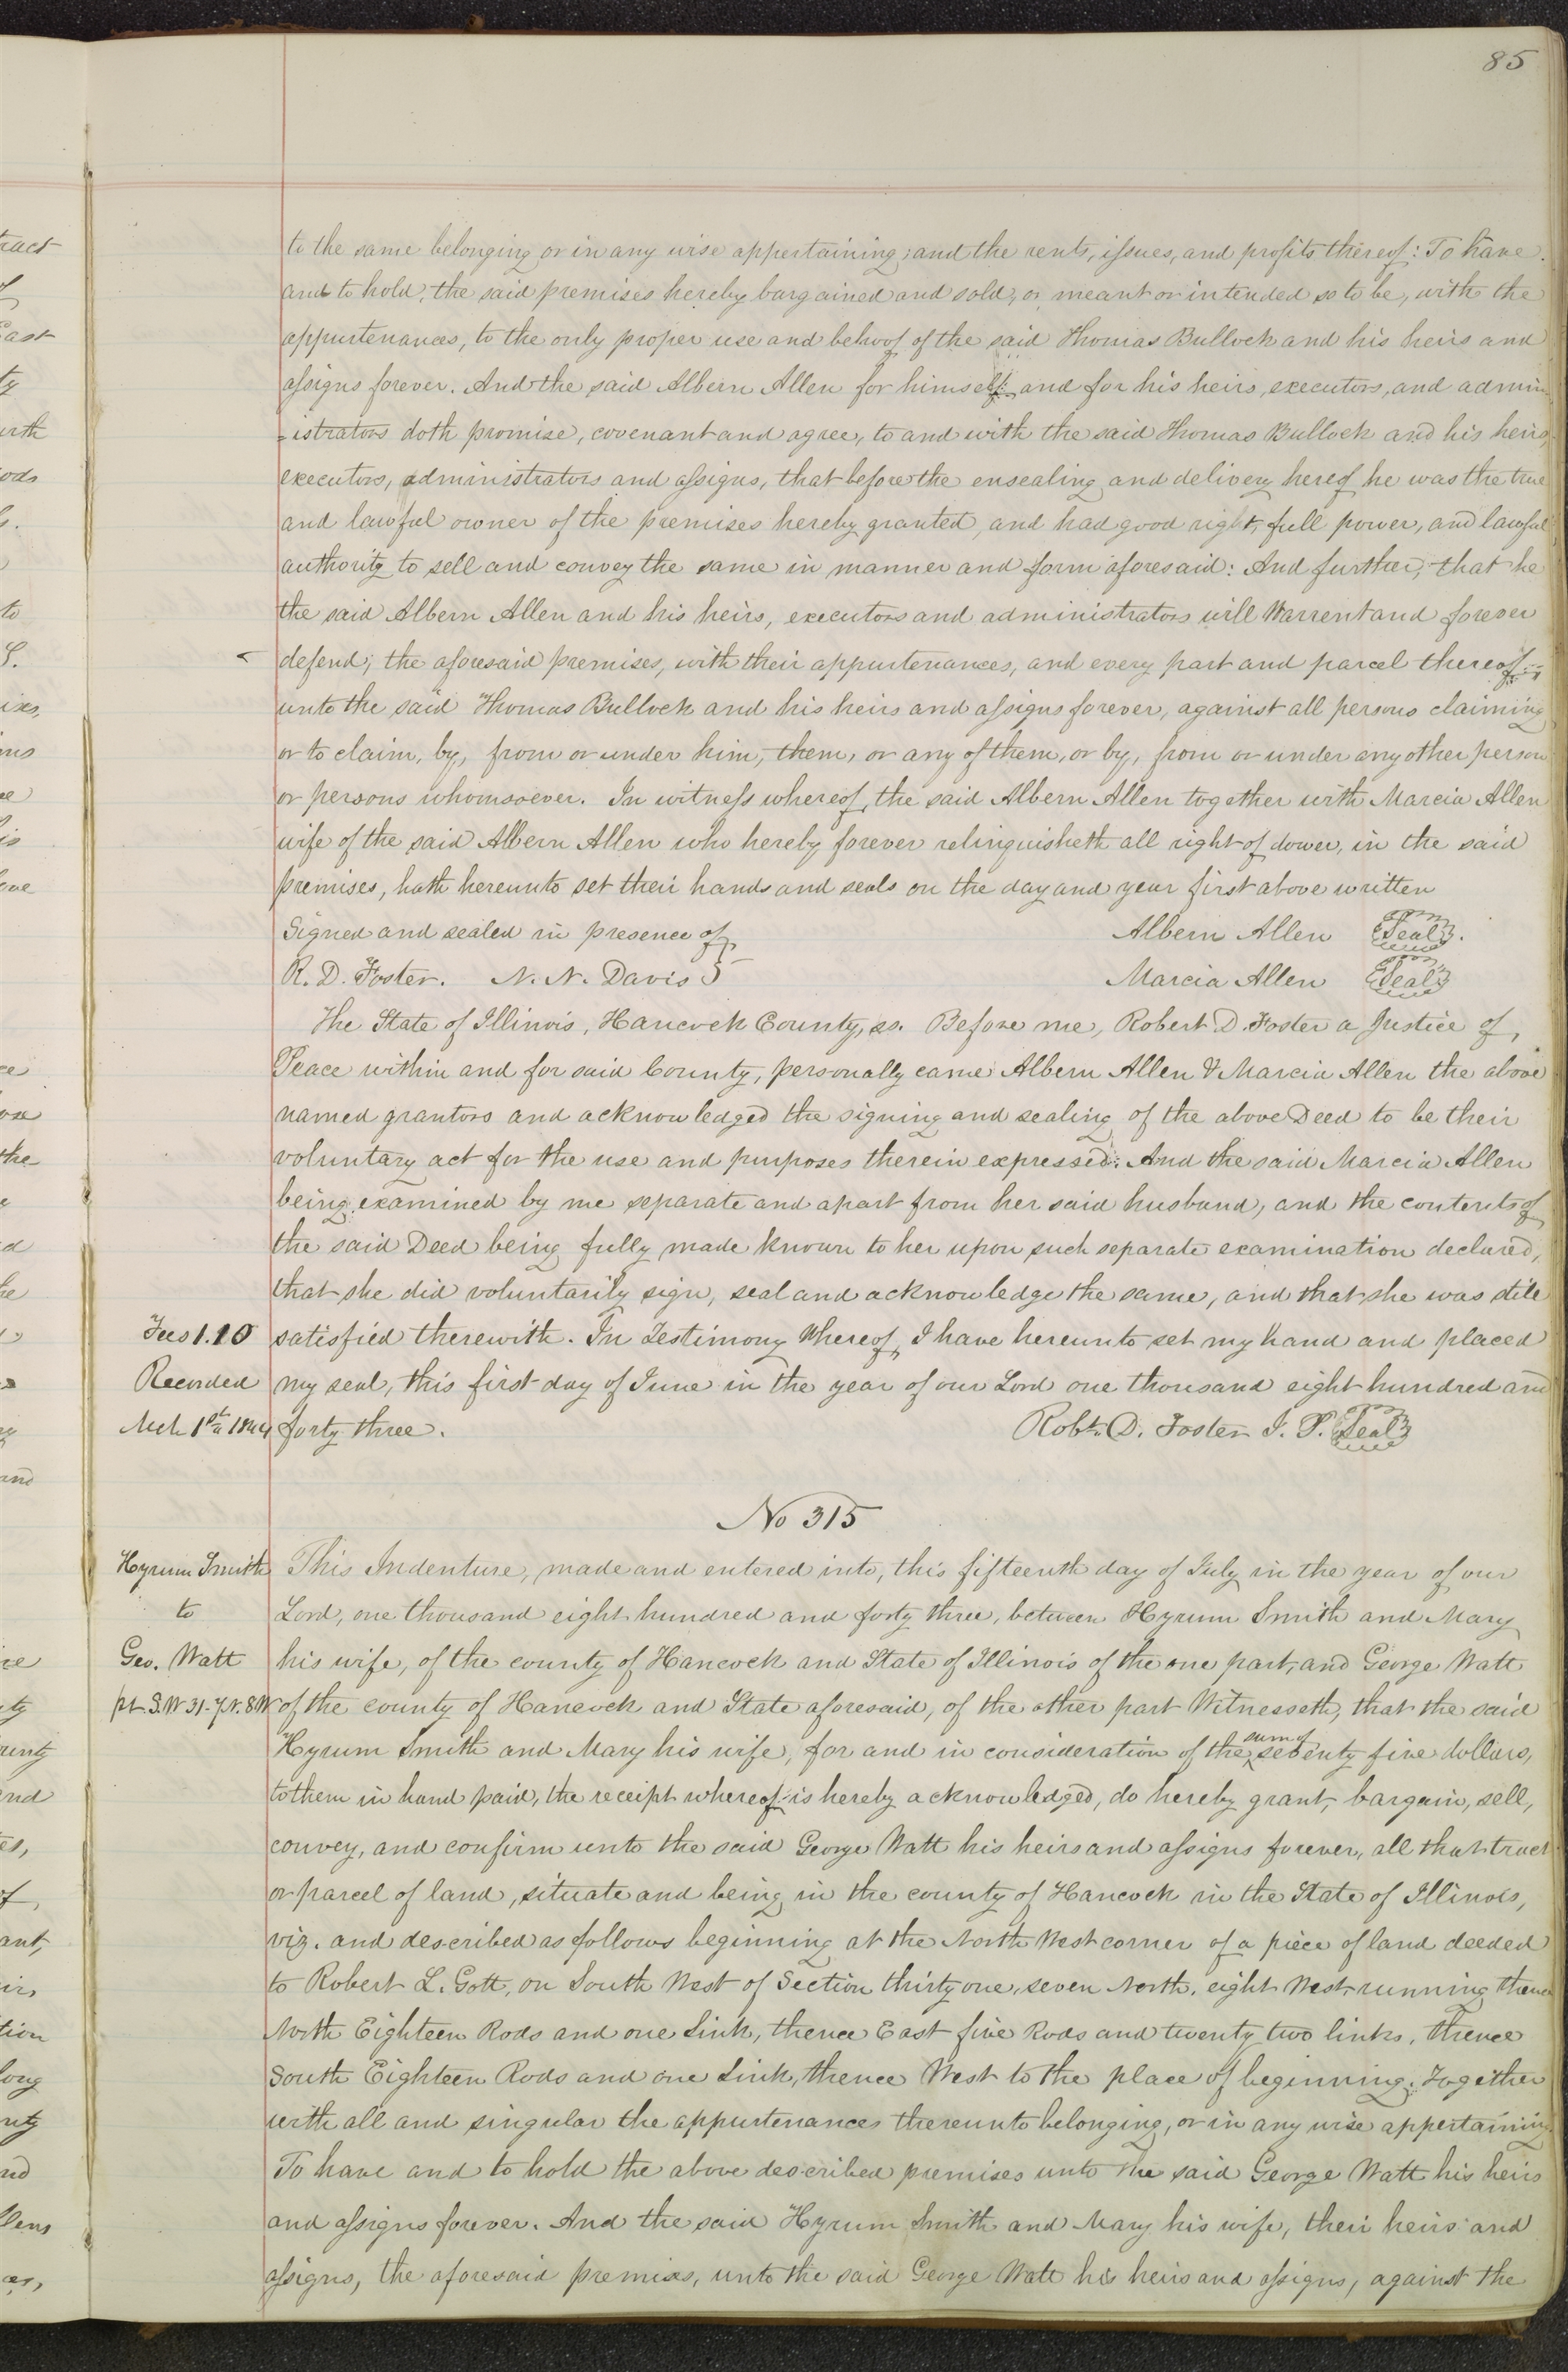 85
to the same belonging or in any wise appertaining; and the rents, issues, and profits thereof: To have
and to hold, the said premises hereby bargained and sold, or meant or intended so to be, with the
appurtenances, to the only proper use and behoof of the said Thomas Bullock and his heirs and
assigns forever. And the said Albern Allen for himself and for his heirs, executors, and admin
=istrators doth promise, covenant and agree, to and with the said Thomas Bullock and his heirs,
executors, administrators and assigns, that before the ensealing and delivery hereof he was the true
and lawful owner of the premises hereby granted, and had good right, full power, and lawful
authority to sell and convey the same in manner and form aforesaid: And further, that he
the said Albern Allen and his heirs, executors and administrators will Warrent and forever
defend; the aforesaid premises, with their appurtenances, and every part and parcel thereof
unto the said Thomas Bullock and his heirs and assigns forever, against all persons claiming
or to claim, by, from or under him, them, or any of them, or by, from or under any other person
or persons whomsoever. In witness whereof, the said Albern Allen together with Marcia Allen
wife of the said Albern Allen who hereby forever relinquisheth all right of dower, in the said
premises, hath hereunto set their hands and seals on the day and year first above written
Signed and sealed in presence of Albern Allen Seal
R. D. Foster. N. N. Davis Marcia Allen Seal
The State of Illinois, Hancock County, ss. Before me, Robert D. Foster a Justice of
Peace within and for said County, personally came Albern Allen & Marcia Allen the above
named grantors and acknowledged the signing and sealing of the above Deed to be their
voluntary act for the use and purposes therein expressed: And the said Marcia Allen
being examined by me separate and apart from her said husband, and the contents of
the said Deed being fully made known to her upon such separate examination declared,
that she did voluntarily sign, seal and acknowledge the same, and that she was still
Fees 1.10 satisfied therewith. In Testimony Whereof, I have hereunto set my hand and placed
Recorded my seal, this first day of June in the year of our Lord one thousand eight hundred and
Mch 1st 1844 forty three. Robt. D. Foster J. P. Seal
No 315
Hyrum Smith This Indenture, made and entered into, this fifteenth day of July in the year of our
to Lord, one thousand eight hundred and forty three, between Hyrum Smith and Mary
Geo. Watt his wife, of the county of Hancock and State of Illinois of the one part, and George Watt
pt. S.W 31-7N. 8W of the county of Hancock and State aforesaid, of the other part Witnesseth, that the said
Hyrum Smith and Mary his wife, for and in consideration of the sum of seventy five dollars,
to them in hand paid, the receipt whereof is hereby acknowledged, do hereby grant, bargain, sell,
convey, and confirm unto the said George Watt his heirs and assigns forever, all that tract
or parcel of land, situate and being in the county of Hancock in the State of Illinois,
viz. and described as follows beginning at the North West corner of a piece of land deeded
to Robert L. Gott, on South West of Section thirty one, seven North, eight West, running thence
North Eighteen Rods and one Link, thence East five Rods and twenty two links, thence
South Eighteen Rods and one Link, thence West to the place of beginning. Together
with all and singular the appurtenances thereunto belonging, or in any wise appertaining
To have and to hold the above described premises unto the said George Watt his heirs
and assigns forever. And the said Hyrum Smith and Mary his wife, their heirs and
assigns, the aforesaid premises, unto the said George Watt his heirs and assigns, against the